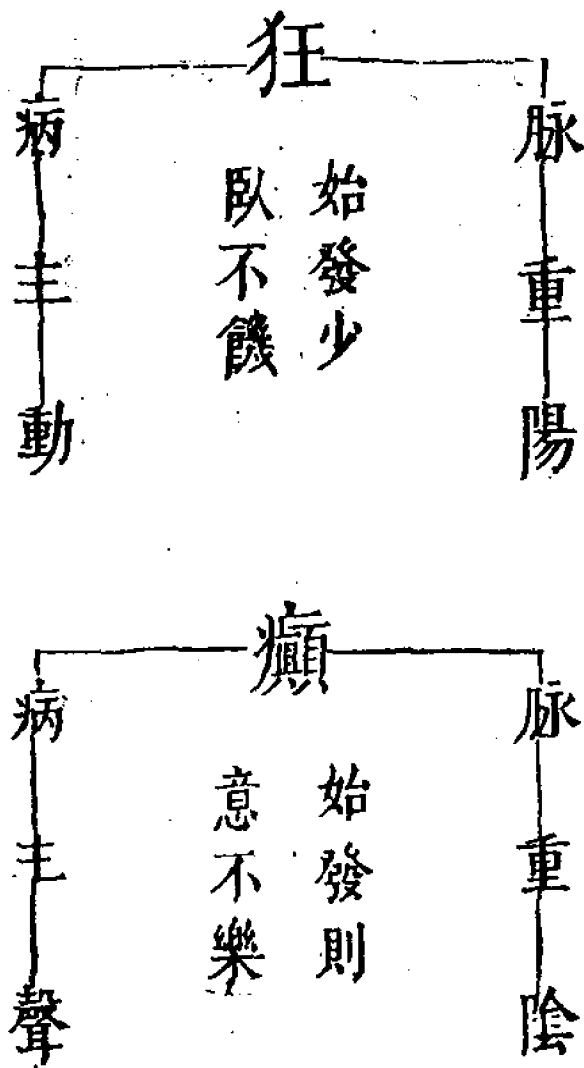 狂
脉重陽
始發少
臥不饑
病主動
癲
脉重陰
始發則
意不樂
病主聲